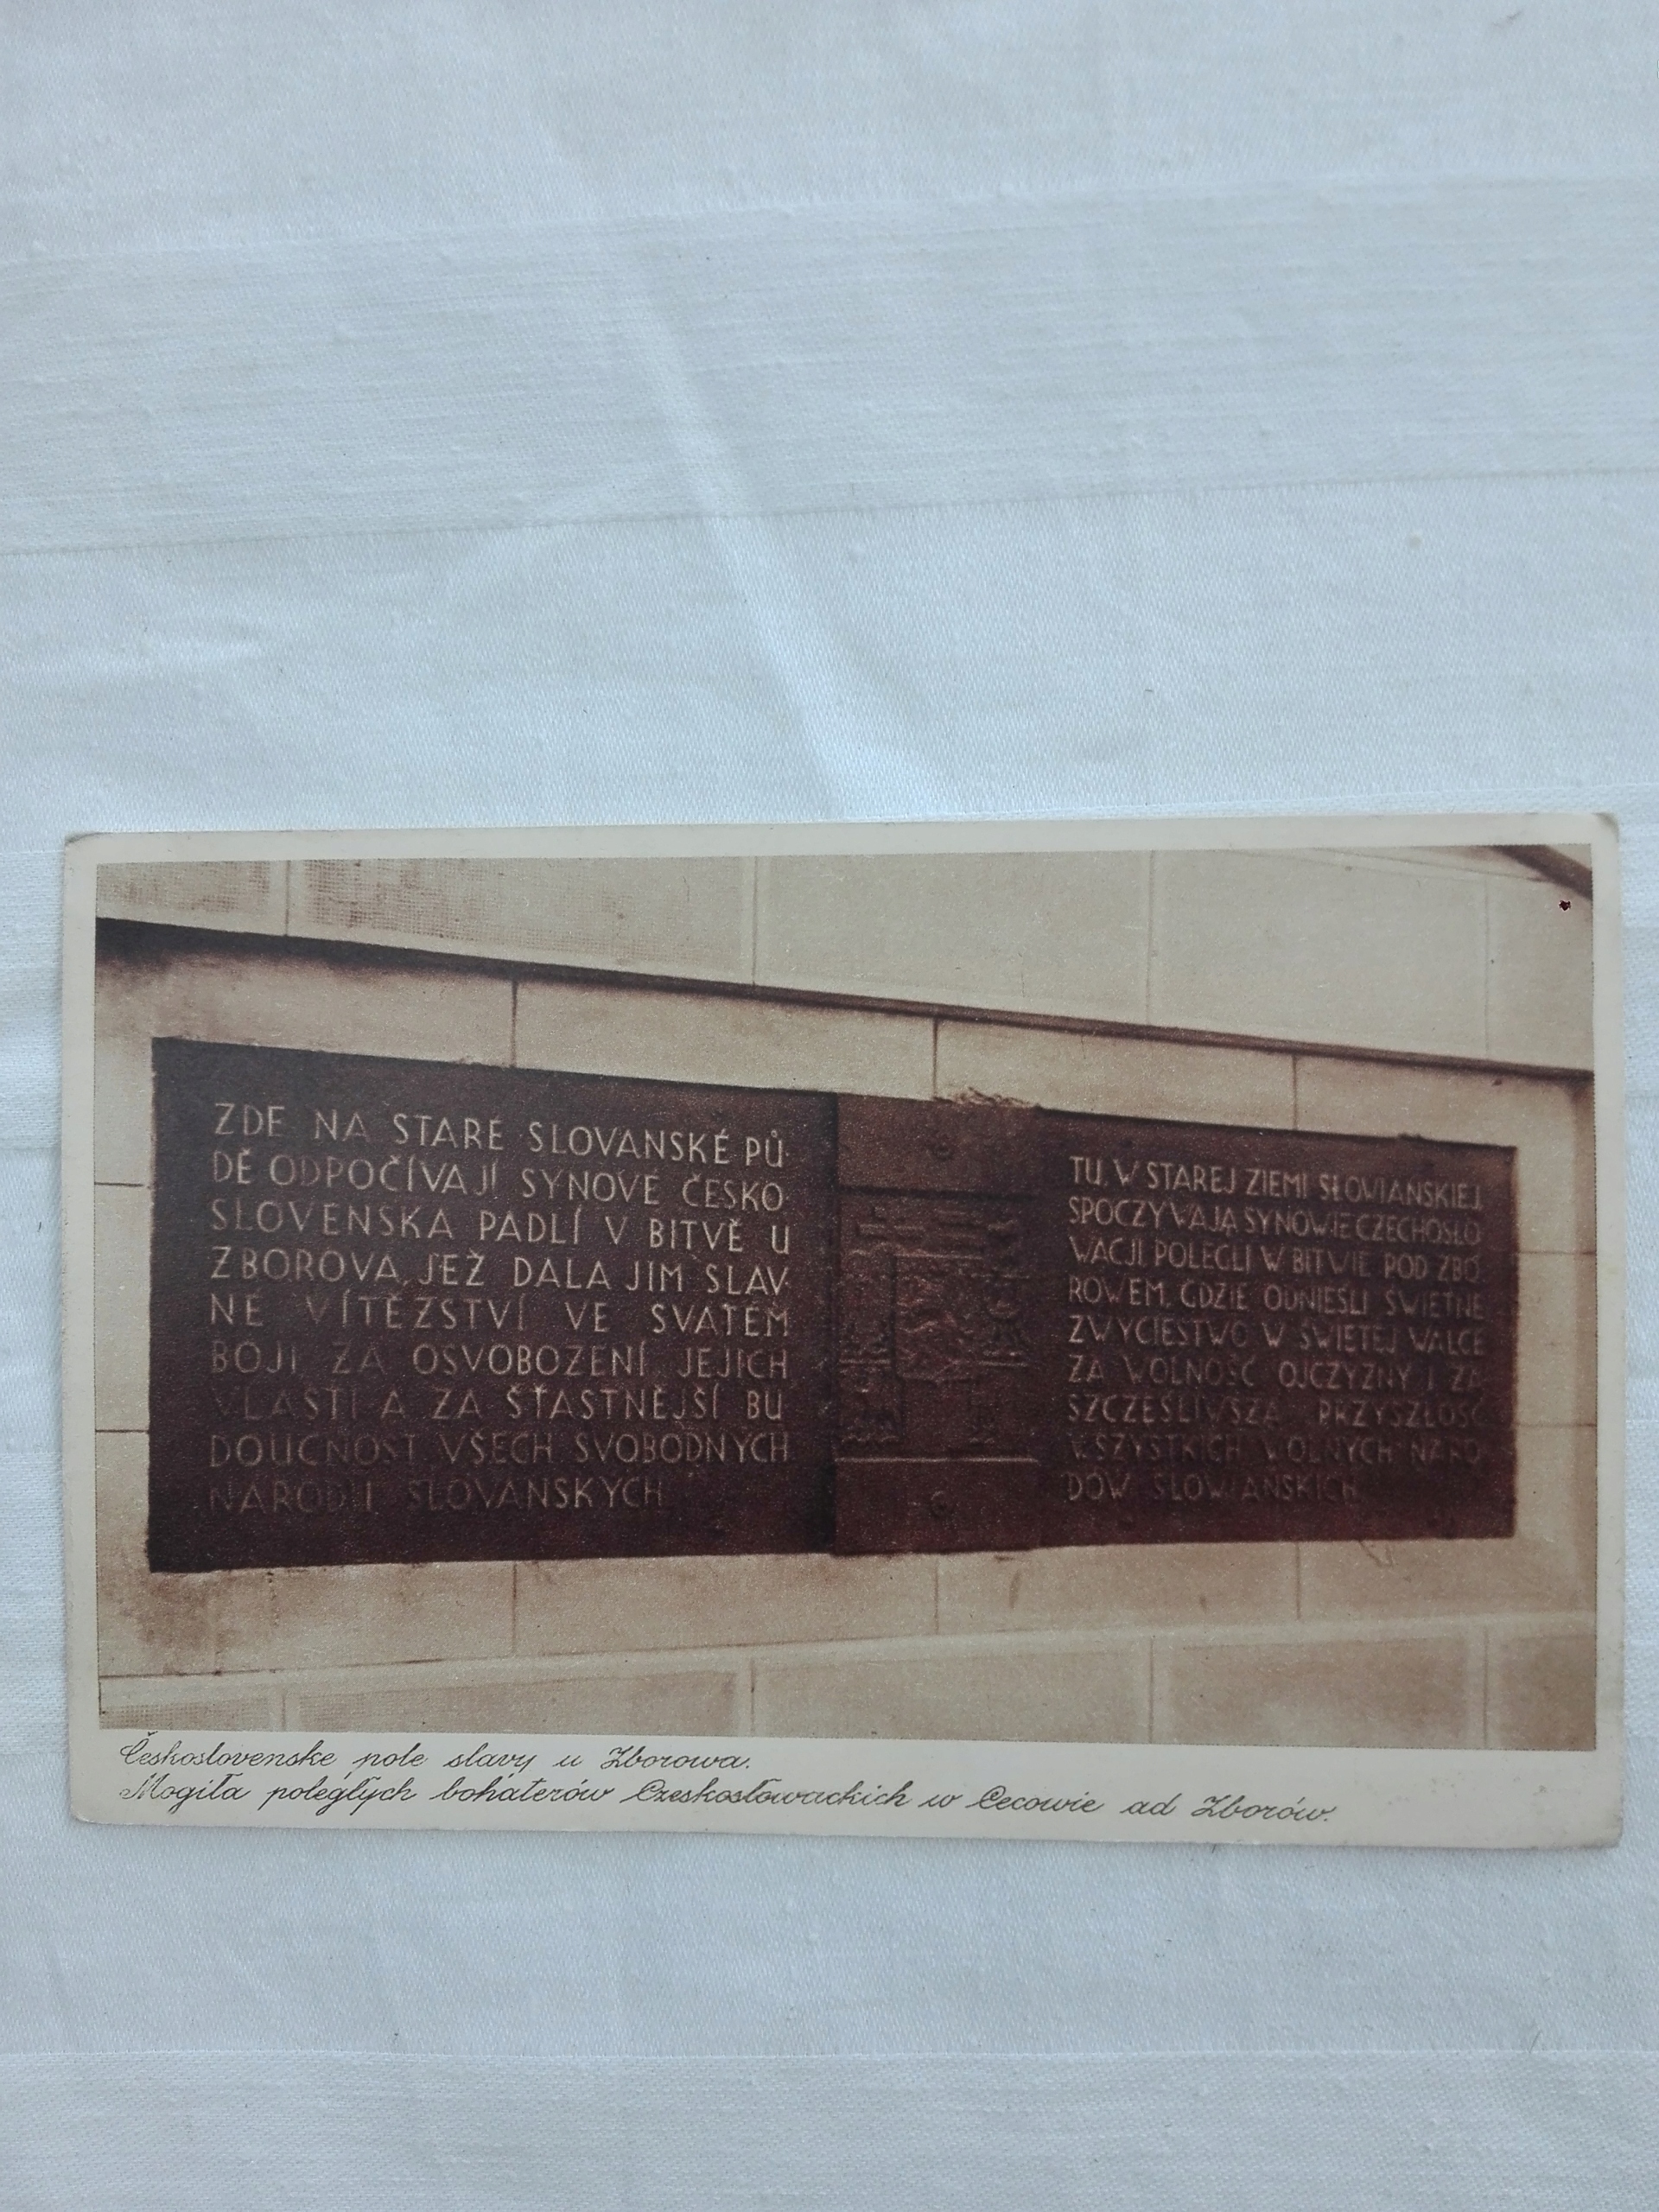 ZDE NA STARÉ SLOVANSKÉ PŮ-
DĚ ODPOČÍVAJÍ SYNOVÉ ČESKO-
SLOVENSKA PADLÍ V BITVĚ U
ZBOROVA, JEŽ DALA JIM SLAV-
NÉ VÍTĚZSTVÍ VE SVATÉM
BOJI ZA OSVOBOZENÍ JEJICH
VLASTI A ZA ŠŤASTNĚJŠÍ BU
DOUCNOST VŠECH SVOBODNÝCH
NÁRODŮ SLOVANSKÝCH.
TU, W STAREJ ZIEMI SŁOWIAŃSKIEJ,
SPOCZYWAJĄ SYNOWIE CZECHOSŁO
WACJI, POLEGLI W BITWIE POD ZBO-
ROWEM, GDZIE ODNIEŚLI ŚWIETNE
ZWYCIĘSTWO W ŚWIĘTEJ WALCE
ZA WOLNOŚĆ OJCZYZNY I ZA
SZCZĘŚLIWSZĄ PRZYSZŁOŚĆ
WSZYSTKICH WOLNYCH NARO
DÓW SŁOWIAŃSKICH.
Československe pole slavy u Zborowa.
Mogiła poległych bohaterów Czeskosłowackich w Cecowie ad Zborów.